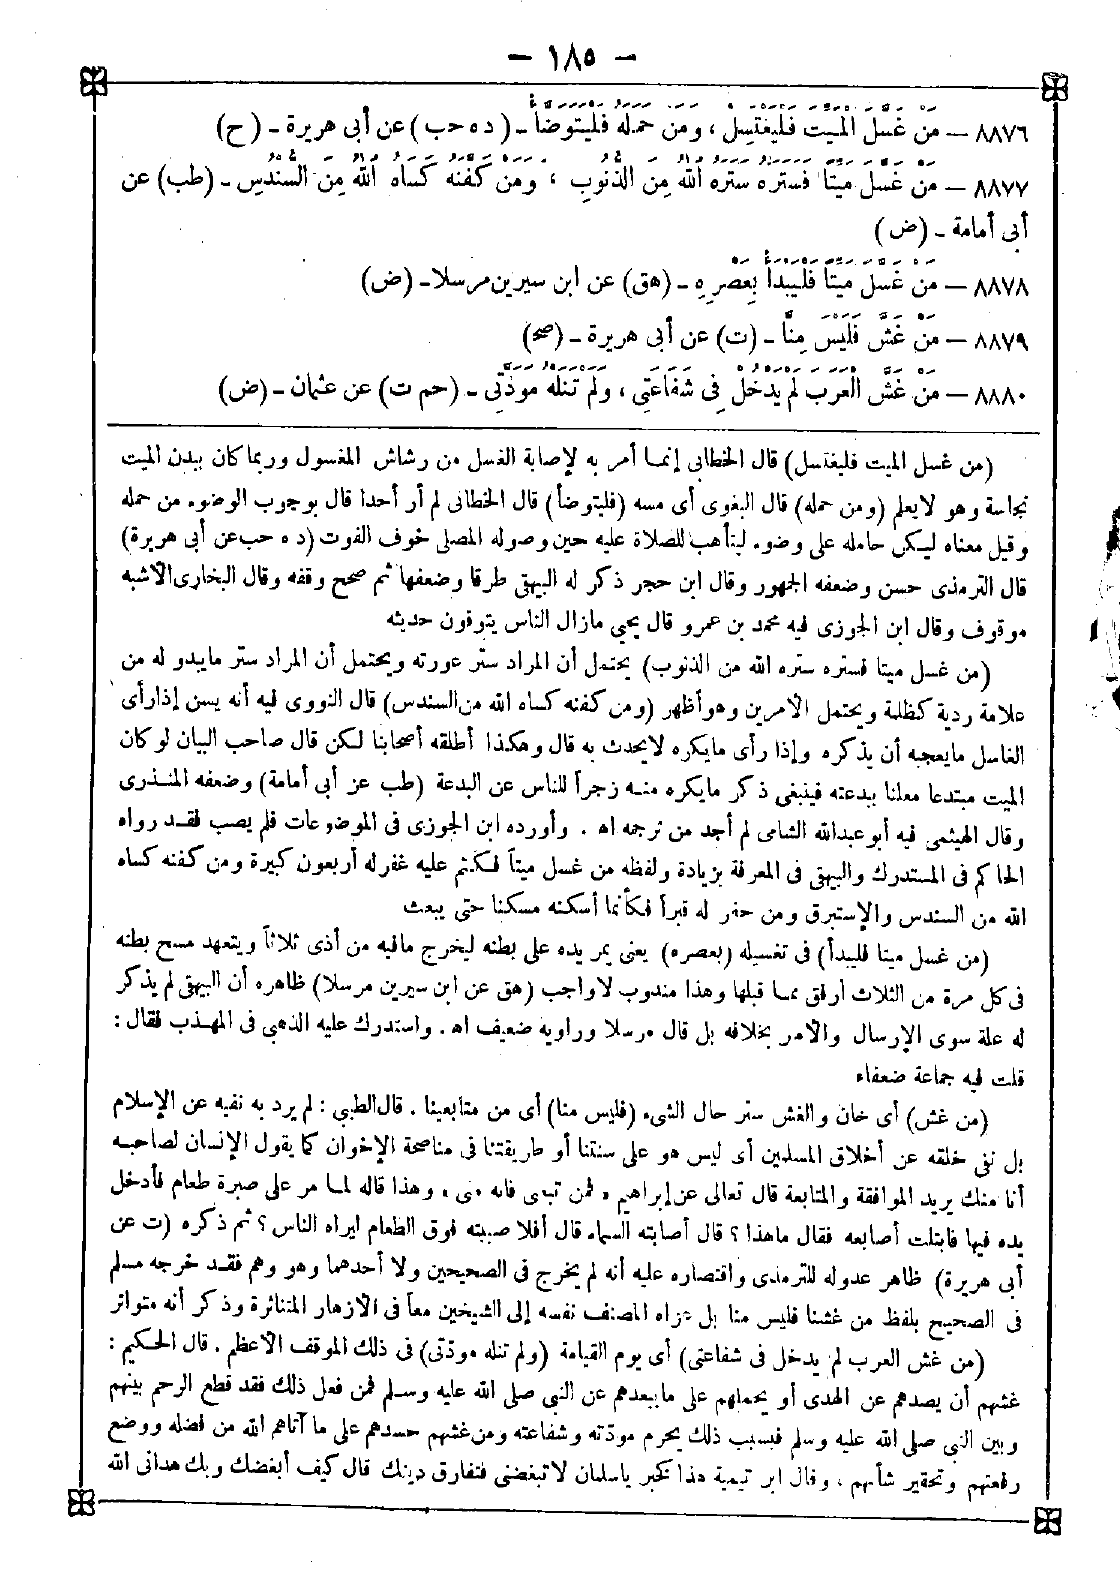 – ١٨٥ –
٨٨٧٦ – مَنْ غَسَّلَ الْمَيِّتَ فَلْيَغْتَسِلْ، وَمَنْ حَمَلَهُ فَلْيَتَوَضَّأْ – (د ه حب) عن أبى هريرة – (ح)
٨٨٧٧ – مَنْ غَسَّلَ مَيِّتًا فَسَتَرَهُ سَتَرَهُ اللّٰهُ مِنَ الذُّنُوبِ، وَمَنْ كَفَّنَهُ كَسَاهُ اللّٰهُ مِنَ السُّنْدُسِ – (طب) عن
أبى أمامة – (ض)
٨٨٧٨ – مَنْ غَسَّلَ مَيِّتًا فَلْيَبْدَأْ بِعَصْرِهِ – (هق) عن ابن سيرين مرسلا – (ض)
٨٨٧٩ – مَنْ غَشَّ فَلَيْسَ مِنَّا – (ت) عن أبى هريرة – (صح)
٨٨٨٠ – مَنْ غَشَّ الْعَرَبَ لَمْ يَدْخُلْ فِى شَفَاعَتِى، وَلَمْ تَنَلْهُ مَوَدَّتِى – (حم ت) عن عثمان – (ض)
(من غسل الميت فليغتسل) قال الخطابى إنما أمر به لإصابة الغسل من رشاش المغسول وربما كان ببدن الميت
نجاسة وهو لايعلم (ومن حمله) قال البغوى أى مسه (فليتوضأ) قال الخطابى لم أر أحدا قال بوجوب الوضوء من حمله
وقيل معناه ليكن حامله على وضوء ليتأهب للصلاة عليه حين وصوله المصلى خوف الفوت (د ه حب عن أبى هريرة)
قال الترمذى حسن وضعفه الجمهور وقال ابن حجر ذكر له البيهقى طرقا وضعفها ثم صحح وقفه وقال البخارى الأشبه
موقوف وقال ابن الجوزى فيه محمد بن عمرو قال يحيى مازال الناس يتوقون حديثه
(من غسل ميتا فستره ستره الله من الذنوب) يحتمل أن المراد ستر عورته ويحتمل أن المراد ستر مايبدو له من
علامة ردية كظلمة ويحتمل الأمرين وهو أظهر (ومن كفنه كساه الله من السندس) قال النووى فيه أنه يسن إذا رأى
الغاسل مايعجبه أن يذكره وإذا رأى مايكره لايحدث به قال وهكذا أطلقه أصحابنا لكن قال صاحب البيان لو كان
الميت مبتدعا معلنا ببدعته فينبغى ذكر مايكره منه زجراً للناس عن البدعة (طب عن أبى أمامة) وضعفه المنذرى
وقال الهيثمى فيه أبو عبدالله الشامى لم أجد من ترجمه اه . وأورده ابن الجوزى فى الموضوعات فلم يصب لقد رواه
الحاكم فى المستدرك والبيهقى فى المعرفة بزيادة ولفظه من غسل ميتاً فكتم عليه غفر له أربعون كبيرة ومن كفنه كساه
الله من السندس والإستبرق ومن حفر له قبرا فكأنما أسكنه مسكنا حتى يبعث
(من غسل ميتا فليبدأ) فى تغسيله (بعصره) يعنى يمر يده على بطنه ليخرج مافيه من أذى ثلاثاً ويتعهد مسح بطنه
فى كل مرة من الثلاث أرفق مما قبلها وهذا مندوب لاواجب (هق عن ابن سيرين مرسلا) ظاهره أن البيهقى لم يذكر
له علة سوى الإرسال والأمر بخلافه بل قال مرسلا وراويه ضعيف اه . واستدرك عليه الذهبى فى المهذب فقال :
قلت فيه جماعة ضعفاء
(من غش) أى خان والغش ستر حال الشىء (فليس منا) أى من متابعينا . قال الطيبى : لم يرد به نفيه عن الإسلام
بل نفى خلقه عن أخلاق المسلمين أى ليس هو على سنتنا أو طريقتنا فى مناصحة الإخوان كما يقول الإنسان لصاحبه
أنا منك يريد الموافقة والمتابعة قال تعالى عن إبراهيم « فمن تبعنى فانه منى » وهذا قاله لما مر على صبرة طعام فأدخل
يده فيها فابتلت أصابعه فقال ماهذا ؟ قال أصابته السماء قال أفلا صببته فوق الطعام ليراه الناس ؟ ثم ذكره (ت عن
أبى هريرة) ظاهر عدوله للترمذى واقتصاره عليه أنه لم يخرج فى الصحيحين ولا أحدهما وهو وهم فقد خرجه مسلم
فى الصحيح بلفظ من غشنا فليس منا بل عزاه المصنف نفسه إلى الشيخين معاً فى الأزهار المتناثرة وذكر أنه متواتر
(من غش العرب لم يدخل فى شفاعتى) أى يوم القيامة (ولم تنله مودّتى) فى ذلك الموقف الأعظم . قال الحكيم :
غشهم أن يصدهم عن الهدى أو يحملهم على مايبعدهم عن النبى صلى الله عليه وسلم فمن فعل ذلك فقد قطع الرحم بينهم
وبين النبى صلى الله عليه وسلم فبسبب ذلك يحرم مودّته وشفاعته ومن غشهم حسدهم على ما آتاهم الله من فضله ووضع
رفعتهم وتحقير شأنهم ، وقال ابن تيمية هذا كخبر ياسلمان لاتبغضنى فتفارق دينك قال كيف أبغضك وبك هدانى الله